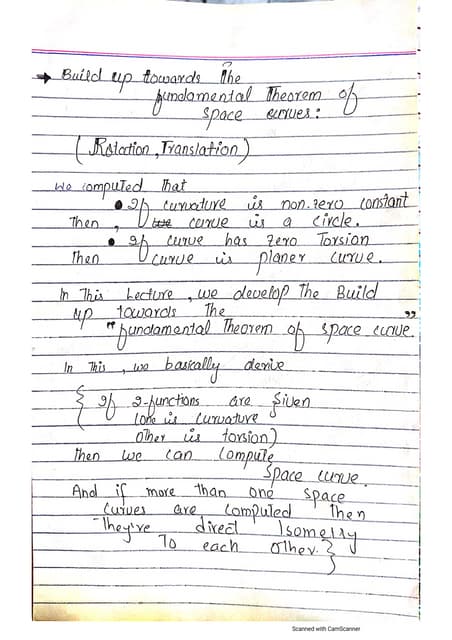 → Build up towards The
fundamental Theorem of
space curves:
(Rotation, Translation)
We computed That
• If curvature is non-zero constant
Then, curve is a circle.
• If curve has zero Torsion
Then curve is planer curve.
In This Lecture, we develop The Build
up towards The
"fundamental Theorem of space curve."
In This, we basically derive
{ If 2-functions are given
(one is curvature
other is torsion)
then we can compute
space curve.
And if more than one space
curves are computed Then
They're direct Isometry
To each other. }
Scanned with CamScanner